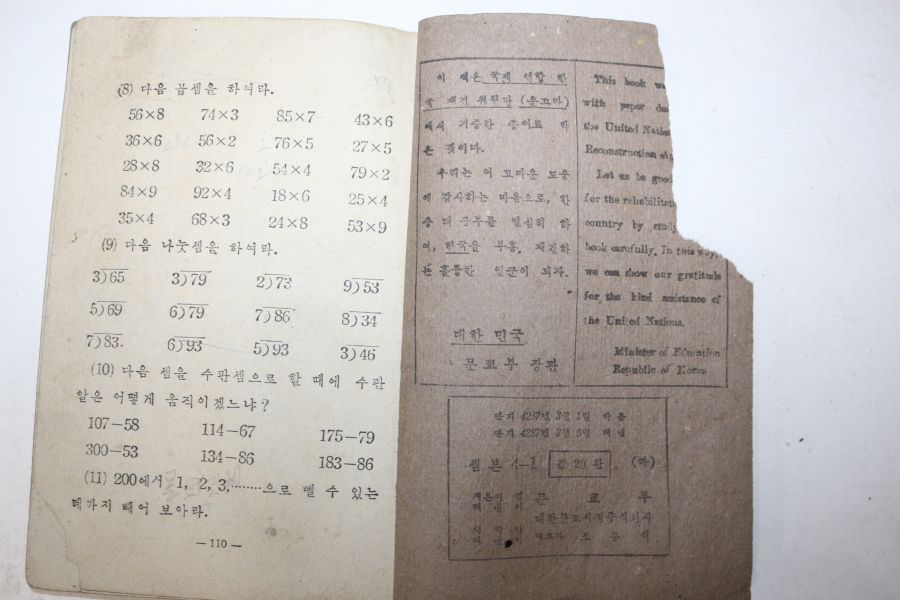 (8) 다음 곱셈을 하여라.
56×8 74×3 85×7 43×6
36×6 56×2 76×5 27×5
28×8 32×6 54×4 79×2
84×9 92×4 18×6 25×4
35×4 68×3 24×8 53×9
(9) 다음 나눗셈을 하여라.
3)65 3)79 2)73 9)53
5)69 6)79 7)86 8)34
7)83 6)93 5)93 3)46
(10) 다음 셈을 수판셈으로 할 때에 수판
알은 어떻게 움직이겠느냐?
107-58 114-67 175-79
300-53 134-86 183-86
(11) 200에서 1, 2, 3,……으로 뺄 수 있는
데까지 빼어 보아라.
—110—
이 책은 국제 연합 한
국 재건 위원단 (운끄라)
에서 기증한 종이로 박
은 것이다.
우리는 이 고마운 도움
에 감사하는 마음으로, 한
층 더 공부를 열심히 하
여, 한국을 부흥, 재건하
는 훌륭한 일꾼이 되자.
대한 민국
문교부 장관
This book
with paper
the United
Reconstruction
Let us be
for the
country by
book carefully. In this way,
we can show our gratitude
for the kind assistance of
the United Nations.
Minister of Education
Republic of Korea
단기 4287년 3월 1일 박음
단기 4287년 3월 5일 펴냄
셈본 4-1 값 20환
문 교 부